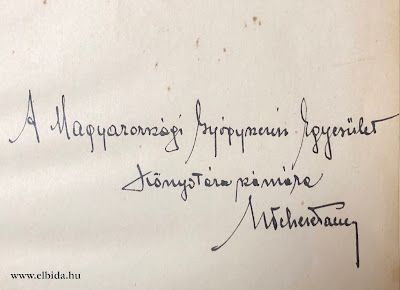 A Magyarországi Gyógyszerész Egyesület
Könyvtára számára
www.elbida.hu